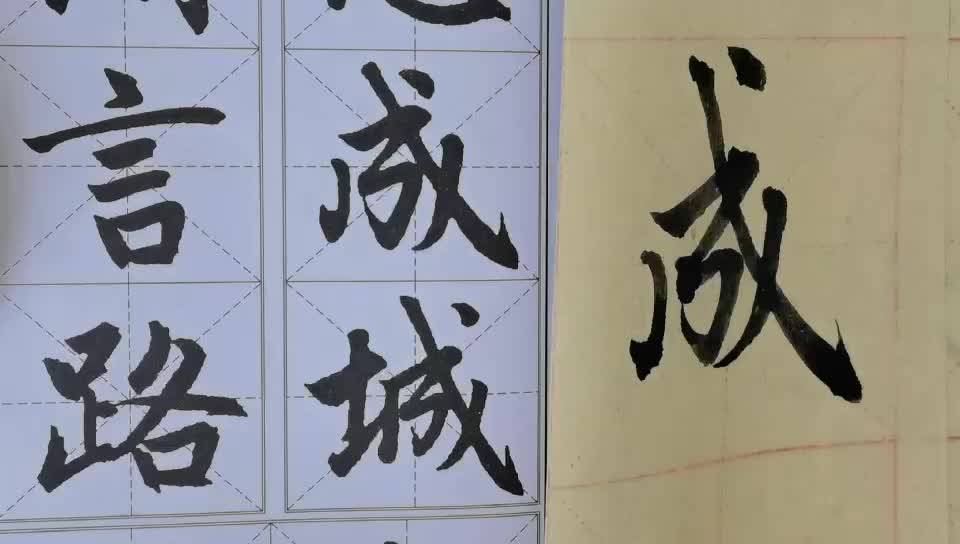 成
城
言
路
成